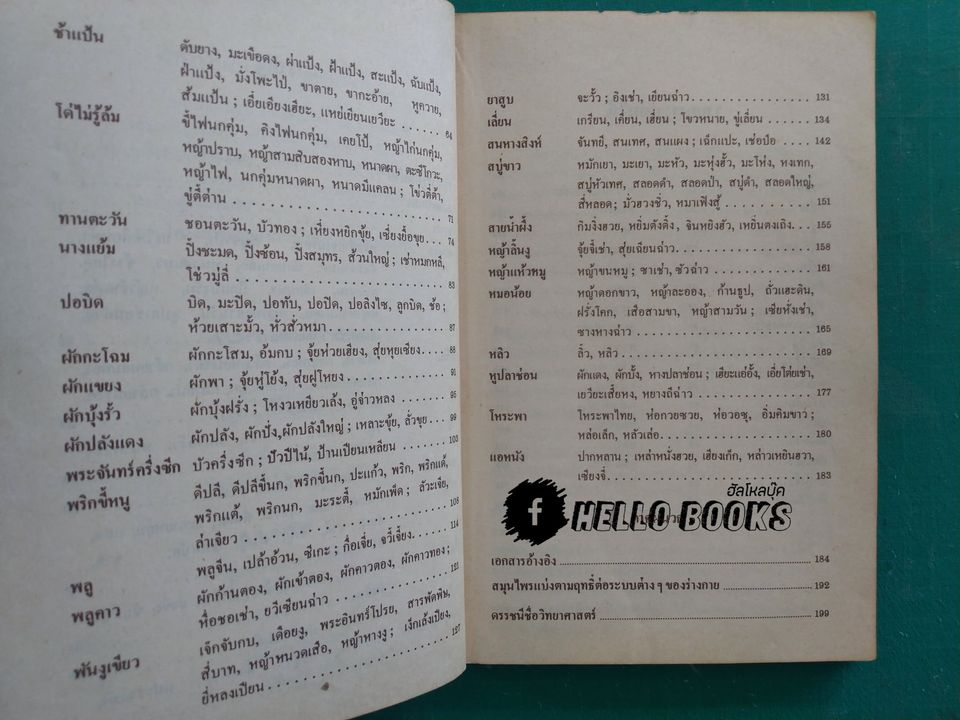 ช้าแป้น
ดับยาง, มะเขือดง, ผ่าแป้ง, ฝ้าแป้ง, สะแป้ง, ฉับแป้ง,
ฝ่าแป้ง, มั่งโพะไป่, ขาตาย, ขากะอ้าย, หูควาย,
ส้มแป้น ; เอี๋ยเอี่ยงเฮียะ, แหย่เยียนเยวียะ 64
โด่ไม่รู้ล้ม ขี้ไฟนกคุ่ม, คิงไฟนกคุ่ม, เคยโป้, หญ้าไก่นกคุ่ม,
หญ้าปราบ, หญ้าสามสิบสองหาบ, หนาดผา, ตะชีโกวะ,
หญ้าไฟ, นกคุ่มหนาดผา, หนาดมีแคลน ; โข่วตี้ต้า,
ขู่ตี้ต่าน 71
ทานตะวัน ชอนตะวัน, บัวทอง ; เหี่ยงหยิกขุ้ย, เซี่ยงยื้อขุย 74
นางแย้ม ปิ้งชะมด, ปิ้งซ้อน, ปิ้งสมุทร, ส้วนใหญ่ ; เช่าหมกหลี,
โช่วมู่ลี่ 83
ปอบิด บิด, มะปิด, ปอทับ, ปอปิด, ปอลิงไซ, ลูกบิด, ช้อ ;
ห้วยเสาะมั้ว, หั่วสั่วหมา 87
ผักกะโฉม ผักกะโสม, อ้มกบ ; จุ้ยห่วยเฮียง, สุ่ยหุยเซียง 88
ผักแขยง ผักพา ; จุ้ยหู่โย้ง, สุ่ยฝูโหยง 91
ผักบุ้งรั้ว ผักบุ้งฝรั่ง ; โหงวเหยียวเล้ง, อู่จ่าวหลง 95
ผักปลังแดง ผักปลัง, ผักปั่ง, ผักปลังใหญ่ ; เหลาะขุ้ย, ลั่วขุย 99
พระจันทร์ครึ่งซีก บัวครึ่งซีก ; ปัวปีไน้, ป้านเปียนเหลียน 103
พริกขี้หนู ดีปลี, ดีปลีขี้นก, พริกขี้นก, ปะแก้ว, พริก, พริกแด้,
พริกแต้, พริกนก, มะระตี้, หมักเพ็ด ; ล้วะเจี่ย,
ล่าเจียว 108
พลู พลูจีน, เปล้าอ้วน, ซีเกะ ; กื่อเจี่ย, จวี้เจี้ยง 114
พลูคาว ผักก้านตอง, ผักเข้าตอง, ผักคาวตอง, ผักคาวทอง ;
หื่อชอเช่า, ยวีเซียนฉ่าว 121
พันงูเขียว เจ็กจับกบ, เดือยงู, พระอินทร์โปรย, สารพัดพิษ,
สี่บาท, หญ้าหนวดเสือ, หญ้าหางงู ; เง็กเล้งเปียง,
ยี่หลงเปียน 127
ยาสูบ จะวั้ว ; อิงเช่า, เยียนฉ่าว 131
เลี่ยน เกรียน, เคี่ยน, เฮี่ยน ; โขวหนาย, ขู่เลี่ยน 134
สนหางสิงห์ จันทยี, สนเทศ, สนแผง ; เฉ็กแปะ, เช่อป๋อ 142
สบู่ขาว หมักเยา, มะเยา, มะหัว, มะหุ่งฮั้ว, มะโห่ง, หงเทก,
สบู่หัวเทศ, สลอดดำ, สลอดป่า, สบู่ดำ, สลอดใหญ่,
สี่หลอด ; มั่วฮวงชิ่ว, หมาเฟิงสู้ 151
สายน้ำผึ้ง กิมงิ่งฮวย, หยิ่มตังติ้ง, จินหยิงฮัว, เหยิ่นตงเถิง 155
หญ้าลิ้นงู จุ้ยจี้เช่า, สุ่ยเฉียนฉ่าว 158
หญ้าแห้วหมู หญ้าขนหมู ; ซาเช่า, ซัวฉ่าว 161
หมอน้อย หญ้าดอกขาว, หญ้าละออง, ก้านธูป, ถั่วแฮะดิน,
ฝรั่งโคก, เสือสามขา, หญ้าสามวัน ; เซียหั่งเช่า,
ซางหางฉ่าว 165
หลิว ลิ้ว, หลิว 169
หูปลาช่อน ผักแดง, ผักบั้ง, หางปลาช่อน ; เฮียะแอ่อั้ง, เอี่ยโต่ยเช่า,
เยวียะเสี้ยหง, หยางถีฉ่าว 177
โหระพา โหระพาไทย, ห่อกวยซวย, ห่อวอซุ, อิ่มคิมขาว ;
หล่อเล็ก, หลัวเล่อ 180
แอหนัง ปากหลาน ; เหล่าหนั่งฮวย, เฮียงเก็ก, หล่าวเหยินฮวา,
เซียงจี๋ 183
ฮัลโหลบุ๊ค
f HELLO BOOKS
เอกสารอ้างอิง 184
สมุนไพรแบ่งตามฤทธิ์ต่อระบบต่าง ๆ ของร่างกาย 192
ดรรชนีชื่อวิทยาศาสตร์ 199